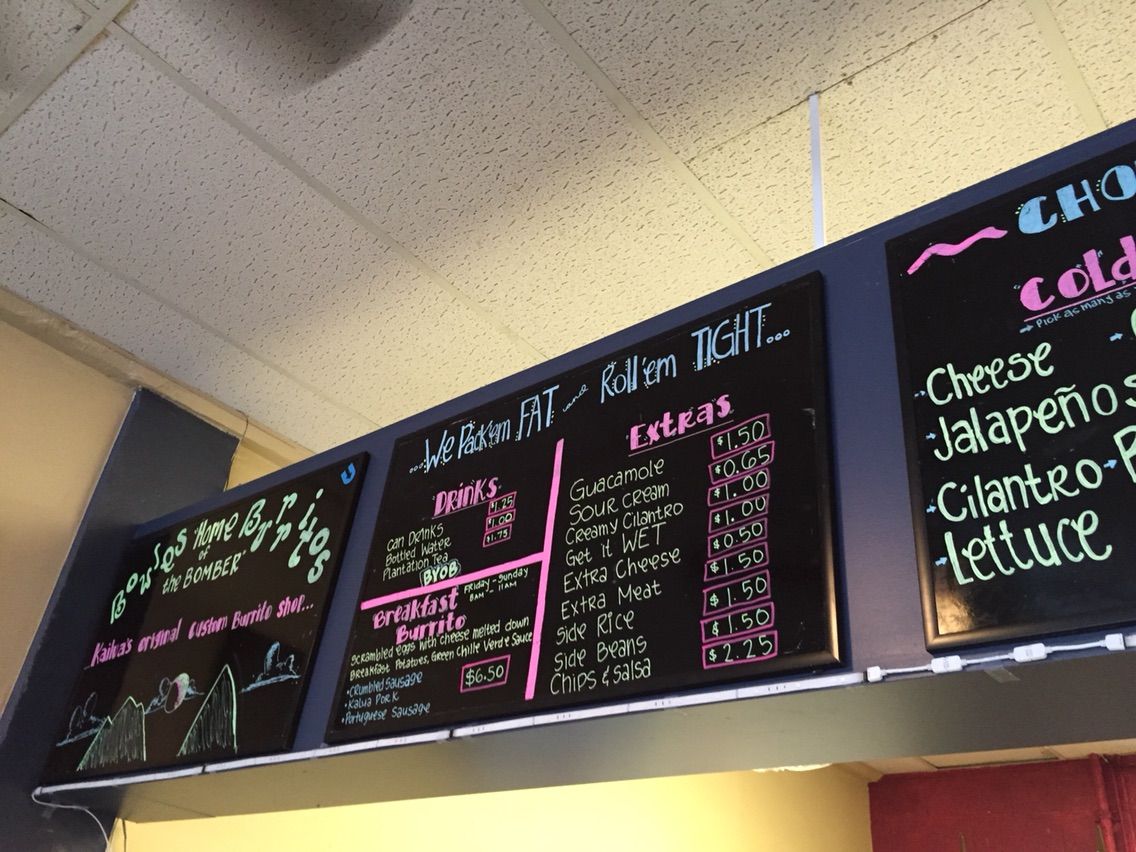 Bowls "Home
of
the BOMBER"
Burritos
Kailua's original Custom Burrito shop...
...We Pack'em FAT and Roll'em TIGHT...
Drinks
Can Drinks $1.25
Bottled Water $1.00
Plantation Tea $1.75
BYOB
Breakfast
Burrito
Friday - Sunday
8am - 11am
Scrambled eggs with cheese melted down
Breakfast Potatoes, Green Chile Verde Sauce
•Crumbled Sausage
•Kalua Pork
•Portuguese Sausage
$6.50
Extras
Guacamole $1.50
Sour Cream $0.65
Creamy Cilantro $1.00
Get it WET $1.00
Extra Cheese $0.50
Extra Meat $1.50
Side Rice $1.50
Side Beans $1.50
Chips & Salsa $2.25
CHO
Cold
Pick as many as
Cheese
Jalapeños
Cilantro
Lettuce